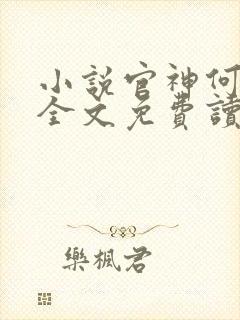 小說官神何
全文免費讀
樂楓君